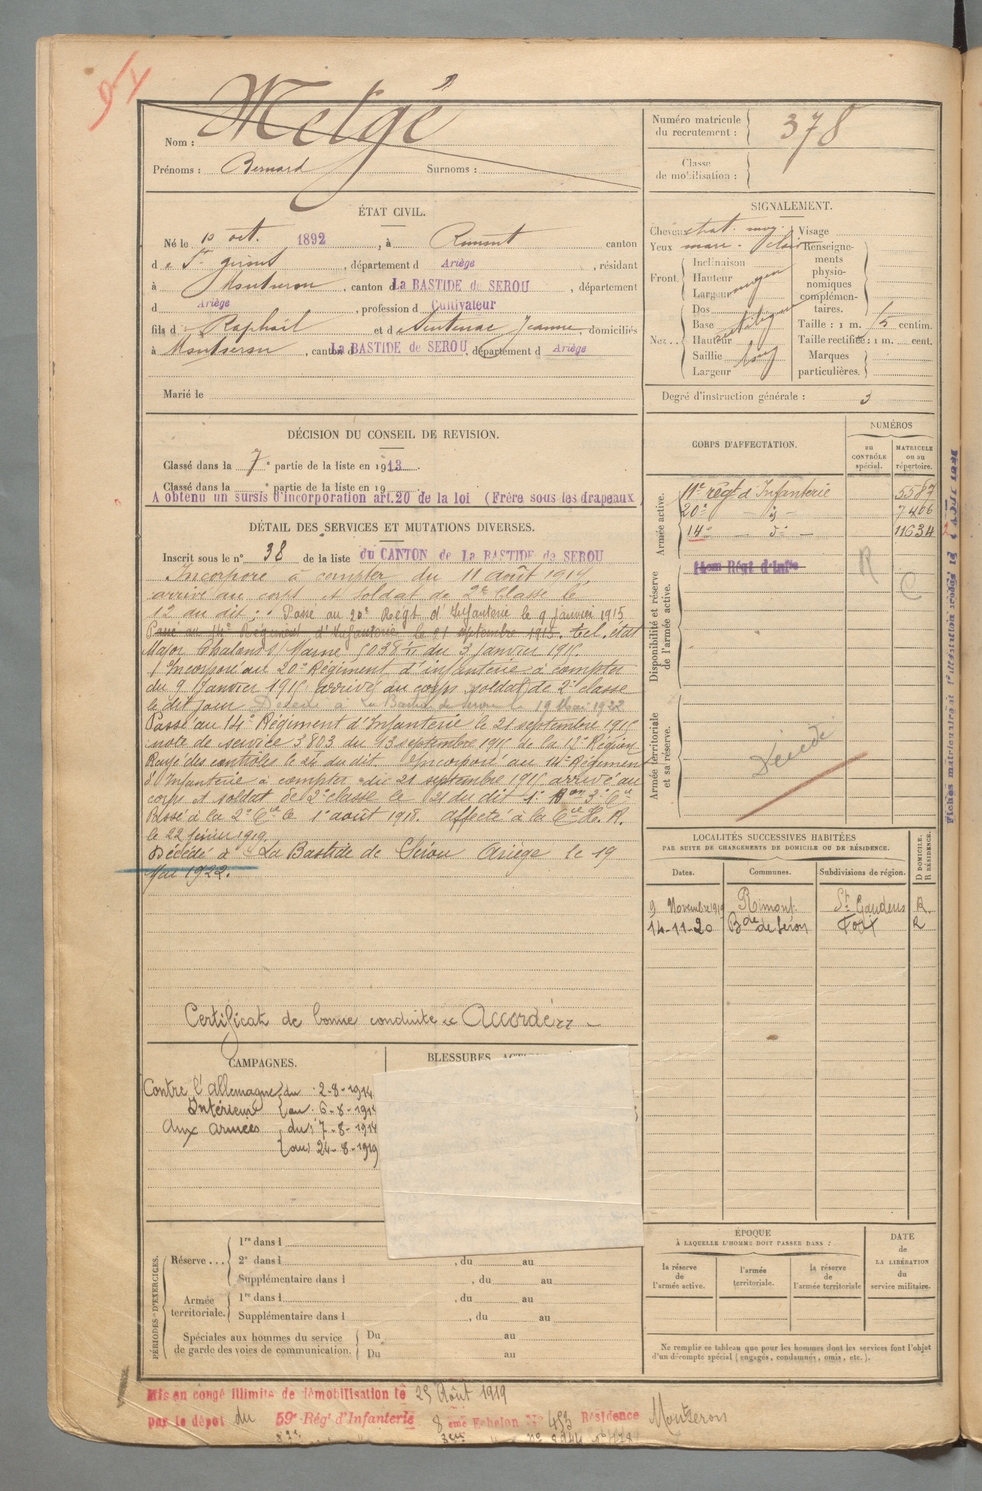 Nom : Melgé
Prénoms : Bernard Surnoms :
Numéro matricule du recrutement : 378
Classe de mobilisation :
ÉTAT CIVIL.
Né le 10 oct. 1892, à Rimont canton
de St Girons, département d Ariège, résidant
à Montseron, canton d La BASTIDE de SEROU, département
d Ariège, profession d Cultivateur
fils d Raphaël et d Sentenac Jeanne, domiciliés
à Montseron, canton d La BASTIDE de SEROU, département d Ariège
Marié le
SIGNALEMENT.
Cheveux chat. moy.
Yeux marr. clair
Front. Inclinaison
Hauteur moyen
Largeur
Nez.. Dos
Base
Hauteur
Saillie long
Largeur
Visage
Renseignements physionomiques complémentaires.
Taille : 1 m. centim.
Taille rectifiée : 1 m. cent.
Marques particulières.
Degré d'instruction générale : 3
DÉCISION DU CONSEIL DE REVISION.
Classé dans la 7e partie de la liste en 1913.
Classé dans la e partie de la liste en 19
A obtenu un sursis d'incorporation art.20 de la loi (Frère sous les drapeaux)
DÉTAIL DES SERVICES ET MUTATIONS DIVERSES.
Inscrit sous le n° 38 de la liste du CANTON de La BASTIDE de SEROU
Incorporé à compter du 11 août 1914,
arrivé au corps et soldat de 2e classe le
12 du dit. Passé au 20e Régt d'Infanterie le 9 janvier 1915
Passé au 14e Régiment d'Infanterie le 21 septembre 1915. Bul. état
Major Chalons s/ Marne 5038 du 3 Janvier 1915.
Incorporé au 20e Régiment d'infanterie à compter
du 9 Janvier 1915 arrivé au corps soldat de 2e classe
le dit jour Décédé à La Bastide de Serou le 19 Mai 1922
Passé au 14e Régiment d'Infanterie le 21 septembre 1915
note de service 3.803 du 13 septembre 1915 de la 17e Région
Rayé des contrôles le 24 du dit. Incorporé au 14e Régiment
d'Infanterie à compter du 21 septembre 1915 arrivé au
corps et soldat de 2e classe le 21 du dit 1er Bon 3e Cie
Passé à la 2e Cie le 1er août 1918. affecté à la Cie H. R.
le 22 février 1919
Décédé à La Bastide de Sérou Ariège le 19
Mai 1922.
Certificat de bonne conduite "Accordé" –
CORPS D'AFFECTATION.
NUMÉROS
AU CONTRÔLE spécial.
MATRICULE ou au répertoire.
Armée active.
11e régt d'Infanterie 5587
20e — d° — 7406
14e — d° — 11634
Disponibilité et réserve de l'armée active.
14eme Régt d'Infie
R
C
Armée territoriale et sa réserve.
Décédé
LOCALITÉS SUCCESSIVES HABITÉES
PAR SUITE DE CHANGEMENTS DE DOMICILE OU DE RÉSIDENCE.
D DOMICILE. R RÉSIDENCE.
Dates. Communes. Subdivisions de région.
9 Novembre 1919 Rimont St Gaudens R
14-11-20 Bde de Sérou Foix R
CAMPAGNES.
Contre l'allemagne du 2-8-1914
Intérieur au 6-8-1914
Aux armées du 7-8-1914
au 24-8-1919
BLESSURES
PÉRIODES D'EXERCICES.
Réserve ... 1re dans l
2e dans l , du au
Supplémentaire dans l , du au
Armée territoriale. 1re dans l , du au
Supplémentaire dans l , du au
Spéciales aux hommes du service de garde des voies de communication. Du au
Du au
ÉPOQUE
À LAQUELLE L'HOMME DOIT PASSER DANS :
la réserve de l'armée active.
l'armée territoriale.
la réserve de l'armée territoriale
DATE de LA LIBÉRATION du service militaire.
Ne remplir ce tableau que pour les hommes dont les services font l'objet
d'un décompte spécial (engagés, condamnés, omis, etc.).
Mis en congé illimité de démobilisation le 25 Août 1919
par le dépôt du 59e Rég' d'Infanterie 8 eme Echelon N° 483 Résidence Montseron